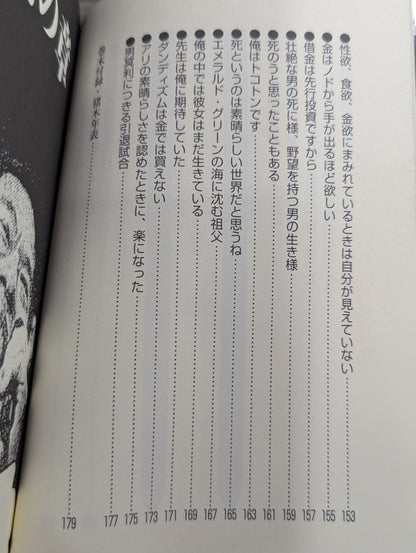 ●性欲、食欲、金欲にまみれているときは自分が見えていない……153
●金はノドから手が出るほど欲しい……155
●借金は先行投資ですから……157
●壮絶な男の死に様、野望を持つ男の生き様……159
●死のうと思ったこともある……161
●俺はトコトンです……163
●死というのは素晴らしい世界だと思うね……165
●エメラルド・グリーンの海に沈む祖父……167
●俺の中では彼女はまだ生きている……169
●先生は俺に期待していた……171
●ダンディズムは金では買えない……173
●アリの素晴らしさを認めたときに、楽になった……175
●男冥利につきる引退試合……177
巻末付録・猪木年表……179
の章